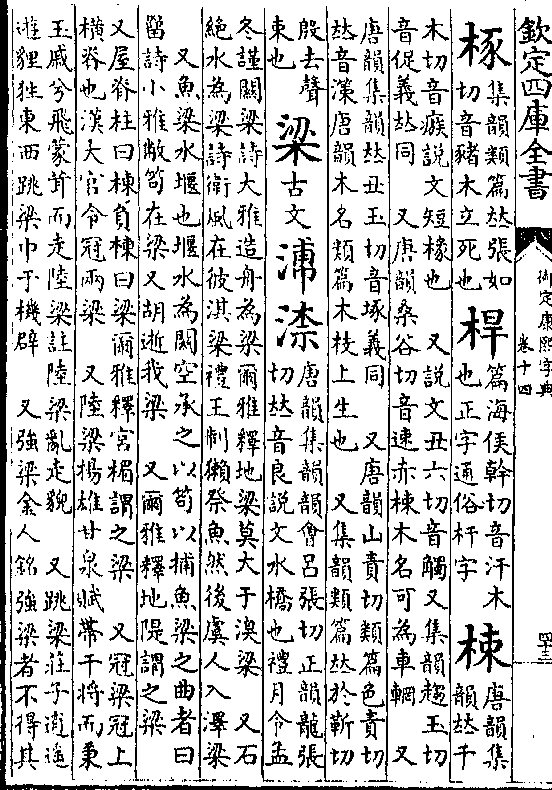 欽定四庫全書
御定康熙字典
卷十四
四十三
椓
集韻類篇𠀤張如
切音豬木立死也
桿
篇海侯幹切音汗木
也正字通俗杆字
梀
唐韻集
韻𠀤千
木切音瘯說文短椽也　又說文丑六切音觸又集韻趨玉切
音促義𠀤同　又唐韻桑谷切音速赤梀木名可為車輞　又
唐韻集韻𠀤丑玉切音瘃義同　又唐韻山責切類篇色責切
𠀤音溹唐韻木名類篇木枝上生也　又集韻類篇𠀤於靳切
殷去聲
束也
梁
古文
㴍
渿
唐韻集韻韻會呂張切正韻龍張
切𠀤音良說文水橋也禮月令孟
冬謹關梁詩大雅造舟為梁爾雅釋地梁莫大于溴梁　又石
絕水為梁詩衛風在彼淇梁禮王制獺祭魚然後虞人入澤梁
又魚梁水堰也堰水為關空承之以笱以捕魚梁之曲者曰
罶詩小雅敝笱在梁又胡逝我梁　又爾雅釋地隄謂之梁
又屋脊柱曰棟負棟曰梁爾雅釋宮楣謂之梁　又冠梁冠上
橫脊也漢大官令冠兩梁　又陸梁揚雄甘泉賦帶干將而秉
玉戚兮飛蒙茸而走陸梁註陸梁亂走貌　又跳梁莊子逍遙
遊貍狌東西跳梁巾于機辟　又強梁金人銘強梁者不得其